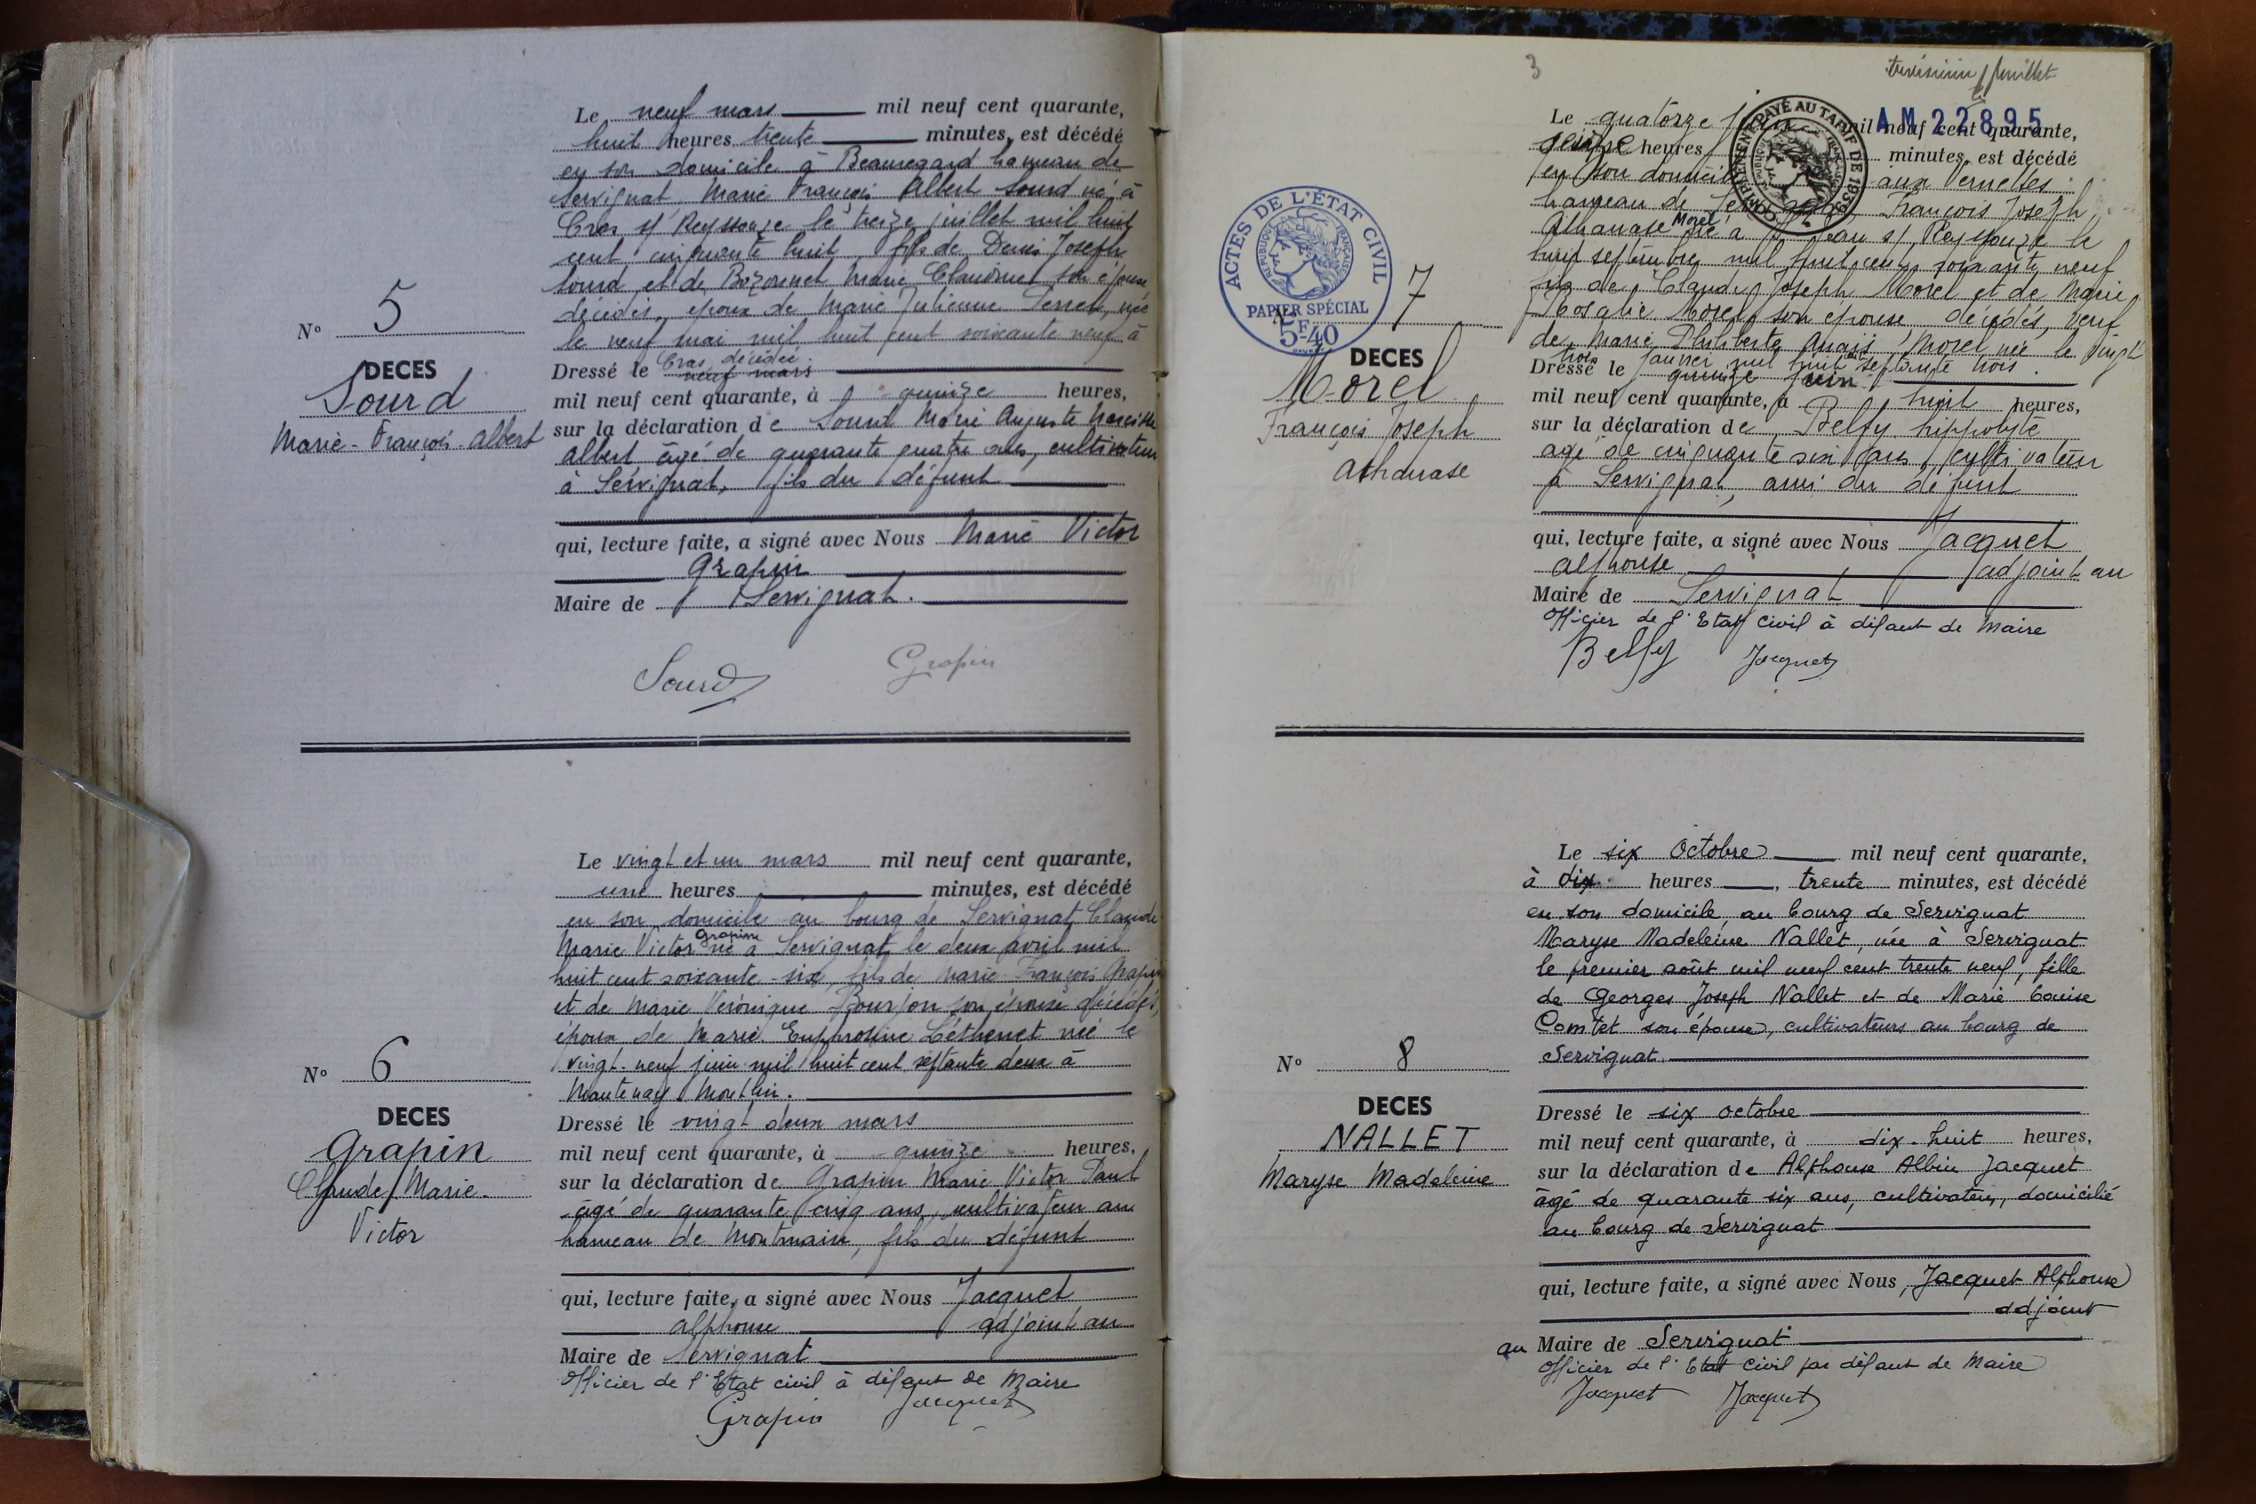 Le neuf mars mil neuf cent quarante,
huit heures trente minutes, est décédé
en son domicile à Beauregard hameau de
Servignat Marie François Albert Sourd né à
Cras s/ Reyssouze le treize juillet mil huit
cent cinquante huit fils de Denis Joseph
Sourd et de Bozonnet Marie Claudine son épouse
décédés, époux de Marie Julienne Perret, née
le neuf mai mil huit cent soixante neuf à
Cras, décédée.
Dressé le neuf mars
mil neuf cent quarante, à quinze heures,
sur la déclaration de Sourd Marie Auguste Narcisse
Albert âgé de quarante quatre ans, cultivateur
à Servignat, fils du défunt
qui, lecture faite, a signé avec Nous Marie Victor
Grapin
Maire de Servignat.
Sourd Grapin
N° 5
DECES
Sourd
Marie-François-Albert
Le vingt et un mars mil neuf cent quarante,
une heures minutes, est décédé
en son domicile au bourg de Servignat Claude
Marie Victor Grapin né à Servignat le deux avril mil
huit cent soixante-six, fils de Marie François Grapin
et de Marie Véronique Bourjon son épouse décédés,
époux de Marie Euphrosine Léthenet née le
vingt-neuf juin mil huit cent septante deux à
Mantenay Montlin.
Dressé le vingt deux mars
mil neuf cent quarante, à quinze heures,
sur la déclaration de Grapin Marie Victor Paul
âgé de quarante cinq ans, cultivateur au
hameau de Montmain, fils du défunt
qui, lecture faite, a signé avec Nous Jacquet
alphonse adjoint au
Maire de Servignat
Officier de l'Etat civil à défaut de Maire
Grapin Jacquet
N° 6
DECES
Grapin
Claude Marie-
Victor
3
troisième feuillet
AM 22895
COMPLEMENT PAYÉ AU TARIF DE 1939
Le quatorze juin mil neuf cent quarante,
seize heures minutes, est décédé
en son domicile aux Vernettes
hameau de Servignat, François Joseph
Athanase Morel né à s/ Reyssouze le
huit septembre mil huit cent soixante neuf
fils de Claude Joseph Morel et de Marie
Rosalie Morel son épouse décédés, veuf
de Marie Philiberte Anaïs Morel née le vingt
trois janvier mil huit cent septante trois.
Dressé le quinze juin
mil neuf cent quarante, à huit heures,
sur la déclaration de Belfy hippolyte
agé de cinquante six ans cultivateur
à Servignat, ami du défunt
qui, lecture faite, a signé avec Nous Jacquet
alphonse adjoint au
Maire de Servignat
Officier de l'Etat civil à défaut de Maire
Belfy Jacquet
ACTES DE L'ÉTAT CIVIL
RÉPUBLIQUE FRANÇAISE
PAPIER SPÉCIAL
5F-40
7
DECES
Morel
François Joseph
Athanase
Le six Octobre mil neuf cent quarante,
à dix heures, trente minutes, est décédé
en son domicile, au bourg de Servignat
Maryse Madeleine Nallet, née à Servignat
le premier août mil neuf cent trente neuf, fille
de Georges Joseph Nallet et de Marie Louise
Comtet son épouse, cultivateurs au bourg de
Servignat.
Dressé le six octobre
mil neuf cent quarante, à dix-huit heures,
sur la déclaration de Alphonse Albin Jacquet
âgé de quarante six ans, cultivateur, domicilié
au bourg de Servignat
qui, lecture faite, a signé avec Nous, Jacquet Alphonse
adjoint
au Maire de Servignat
Officier de l'Etat Civil par défaut de Maire
Jacquet Jacquet
N° 8
DECES
NALLET
Maryse Madeleine